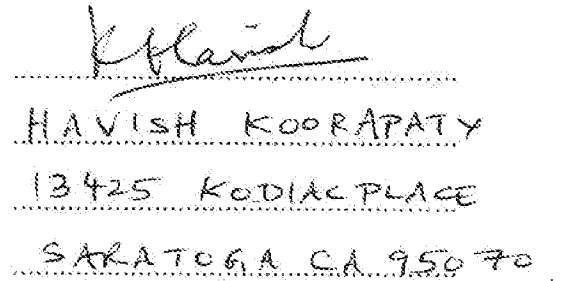 K Havish
HAVISH KOORAPATY
13425 KODIAC PLACE
SARATOGA CA 95070